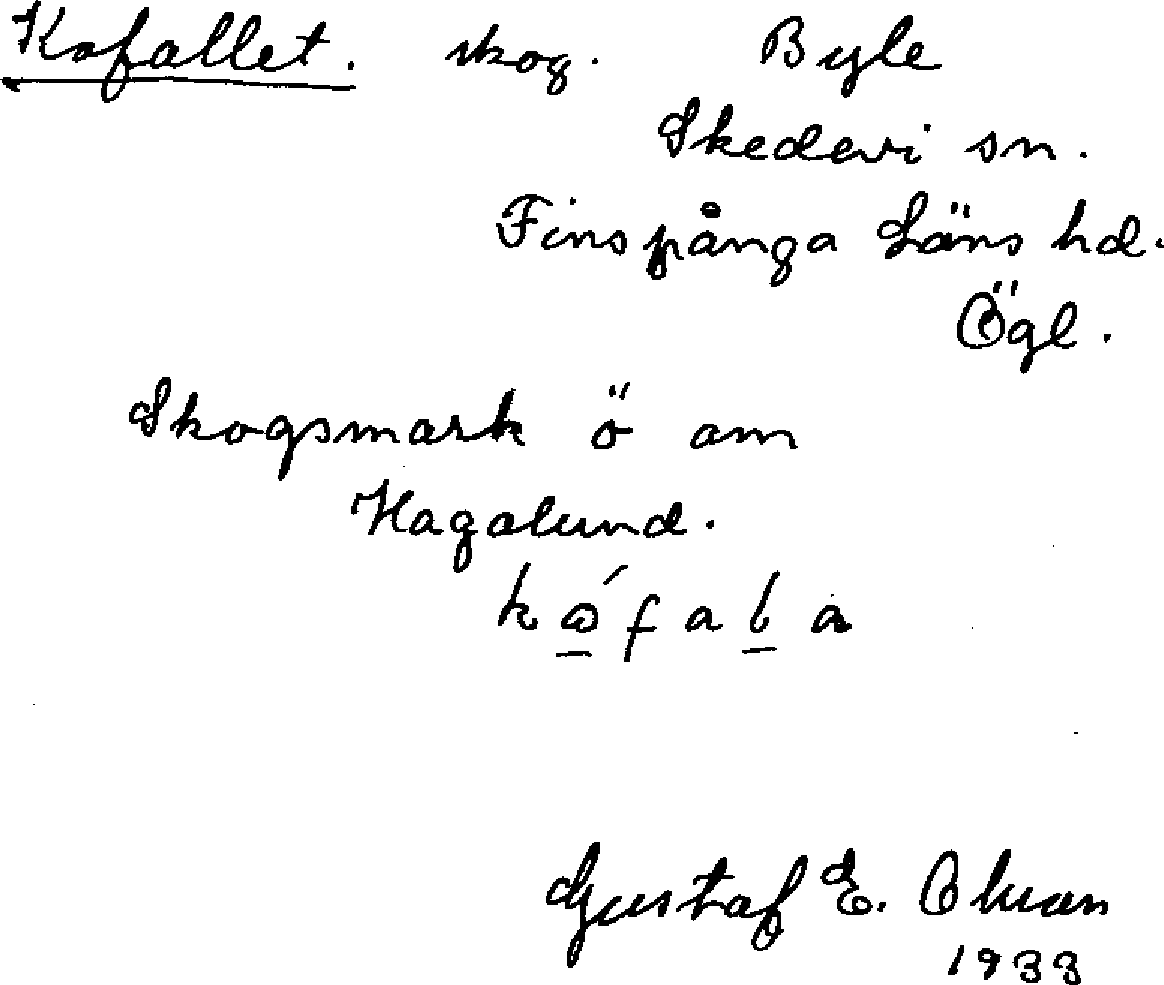 Kofallet. skog. Byle
Skedevi sn.
Finspånga Läns hd.
Ögl.
Skogsmark ö om
Hagalund.
Gustaf E. Olson
1933